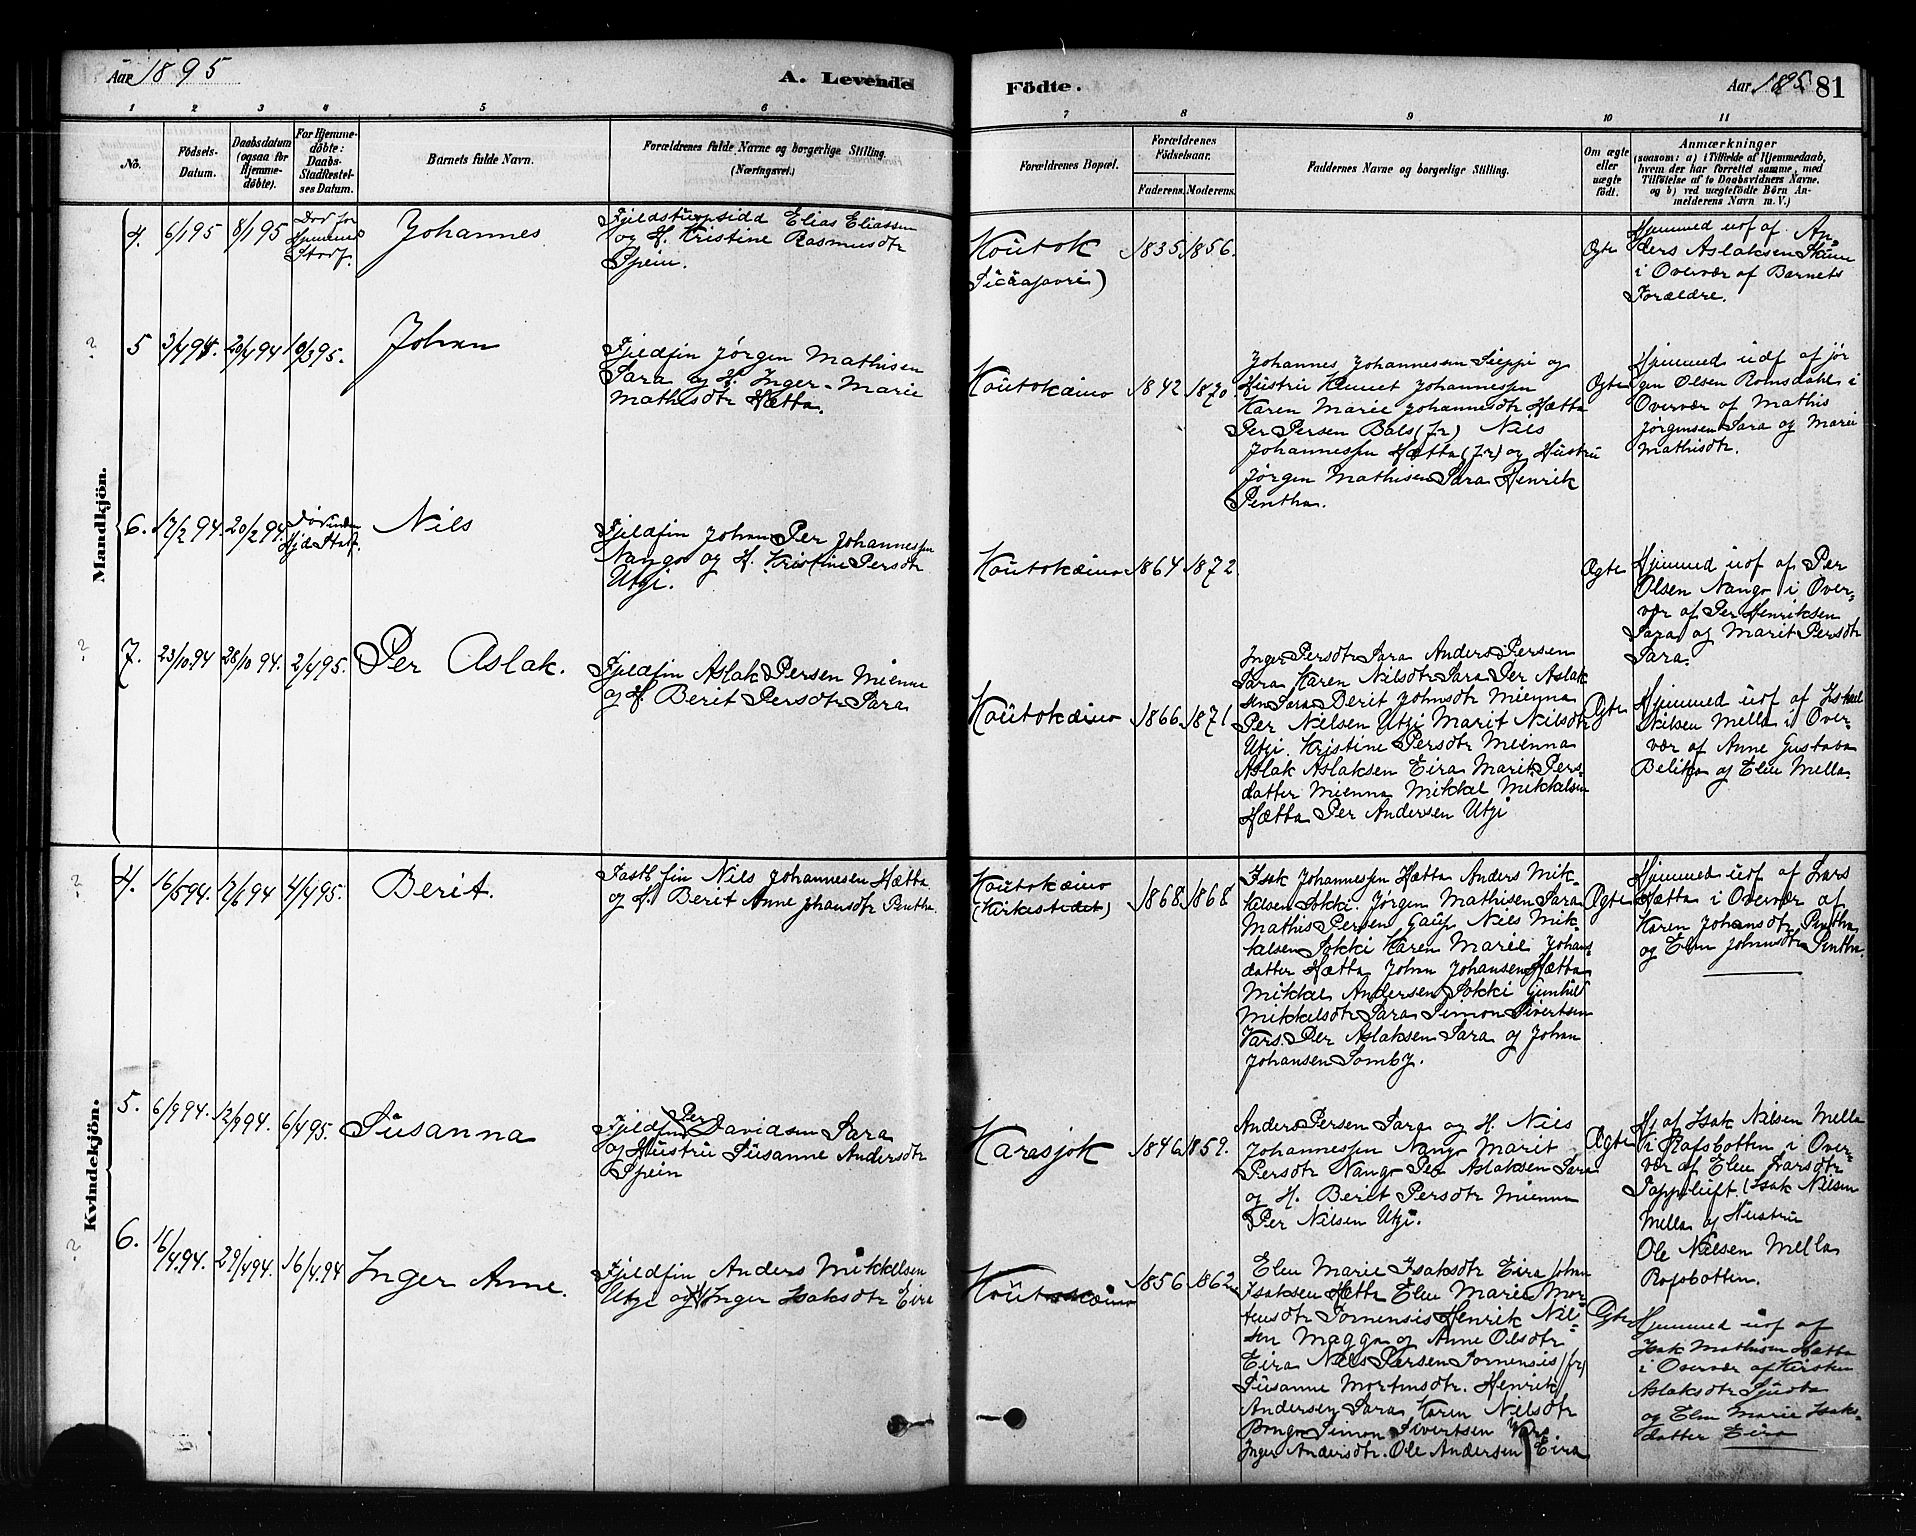 Aar 1895
A. Levende
Födte.
Aar 1895 81
1 2 3 4 5 6 7 8 9 10 11
No.
Födsels-
Datum.
Daabsdatum
(ogsaa for
Hjemme-
döbte).
For Hjemme-
döbte:
Daabs-
Stadfæstel-
ses Datum.
Barnets fulde Navn.
Forældrenes fulde Navne og borgerlige Stilling.
(Næringsvei.)
Forældrenes Bopæl.
Forældrenes
Födselsaar.
Faderens. Moderens.
Faddernes Navne og borgerlige Stilling.
Om ægte
eller
uægte
födt.
Anmærkninger
(saasom: a) i Tilfælde af Hjemmedaab,
hvem der har forrettet samme, med
Tilföielse af to Daabsvidners Navne,
og b) ved uægtefödte Börn An-
melderens Navn m. V.)
Mandkjön.
4. 6/1 95 8/1 95
Död för
Hjemmed
Stadf.
Johannes
Elias Eliassen
og H. Kristine Rasmusdtr
Spein.
Koutok
1835 1856.
Ægte
Hjemmed udf af An
ders Aslaksen Skum
i Overvær af Barnets
Forældre.
?
5 3/4 94. 20/4 94 10/3 95.
Johan
Fjeldfin Jørgen Mathisen
Sara og H. Inger-Marie
Mathisdtr Hætta.
Koutokæino 1842 1870.
Johannes Johannessen Sieppi og
Hustru Johannessen
Karen Marie Johannesdtr Hætta
Per Persen Bals (Jr) Nils
Johannessen Hætta (Jr) og Hustru
Jørgen Mathisen Sara Henrik
Pentha.
Ægte
Hjemmed udf af Jør
gen Olsen Romsdahl i
Overvær af Mathis
Jørgensen Sara og Marie
Mathisdtr.
6. 17/2 94 20/2 94.
Nils
Fjeldfin Johan Per Johannessen
Nango og H. Kristine Persdtr
Utsi.
Koutokæino 1864 1872.
Ægte
Hjemmed udf af Per
Olsen Nango i Over-
vær af Per Henriksen
Sara og Marit Persdtr
Sara.
?
7. 23/10 94 28/10 94. 2/4 95.
Per Aslak.
Fjeldfin Aslak Persen Mienna
og H. Berit Persdtr Sara
Koutokæino 1866 1871.
Inger Persdtr Sara Anders Persen
Sara Karen Nilsdtr Sara Per Aslak
sen Sara Berit Johnsdtr Mienna
Per Nilsen Utsi Marit Nilsdtr
Utsi. Kristine Persdtr Mienna
Aslak Aslaksen Eira Marit Pers-
datter Mienna Mikkel Mikkelsen
Hætta Per Andersen Utsi
Ægte
Hjemmed udf af
Nilsen Mella i Over-
vær af Anne Gustava
og Elen Mella
Kvindekjön.
?
4. 16/5 94. 17/6 94 4/4 95.
Berit.
Fastb. fin Nils Johannesen Hætta
og H. Berit Anne Johansdtr Pentha.
Koutokæino
(Kirkestedet)
1868 1868
Isak Johannessen Hætta Anders Mik-
kelsen Sokki. Jørgen Mathisen Sara
Mathis Persen Gaup Nils Mik-
kelsen Sokki Karen Marie Johans
datter Hætta Johan Johansen Hætta
Mikkel Andersen Sokki Gunhild
Mikkelsdtr Sara Simon Sivertsen
Vars. Per Aslaksen Sara og Johan
Johansen Somby.
Ægte
Hjemmed udf af Lars
Hætta i Overvær af
Karen Johansdtr Pentha
og Elen Johnsdtr Pentha.
5. 6/9 94. 12/9 94. 6/4 95.
Susanna
Fjeldfin Per Davidsen Sara
og Hustru Susanne Andersdtr
Spein
Karasjok 1846 1859.
Anders Persen Sara og H. Nils
Johannessen Nango Marit
Persdtr Nango Per Aslaksen Sara
og H. Berit Persdtr Mienna
Per Nilsen Utsi.
Ægte
Hj af Isak Nilsen Mella
i Rafsbotten i Over-
vær af Elen Larsdtr
(Isak Nilsen
Mella og Hustru
Ole Nilsen Mella
Rafsbotten.
?
6. 16/4 94. 29/4 94. 16/4 94
Inger Anne.
Fjeldfin Anders Mikkelsen
Utsi og H Inger Isaksdtr Eira
Koutokæino 1856 1862
Elen Marie Isaksdtr Eira Johan
Isaksen Hætta Elen Marie Mor-
tensdtr Tornensis Henrik Nil-
sen Magga og Anne Olsdtr
Eira Nils Persen Tornensis (Jr)
Susanne Mortensdtr. Henrik
Andersen Sara Karen Nilsdtr
Bongo Simon Sivertsen Vars
Inger Andersdtr. Ole Andersen Eira
Ægte
Hjemmed udf af
Isak Mathisen Hætta
i Overvær af Kirsten
Aslaksdtr
og Elen Marie Isaks-
datter Eira